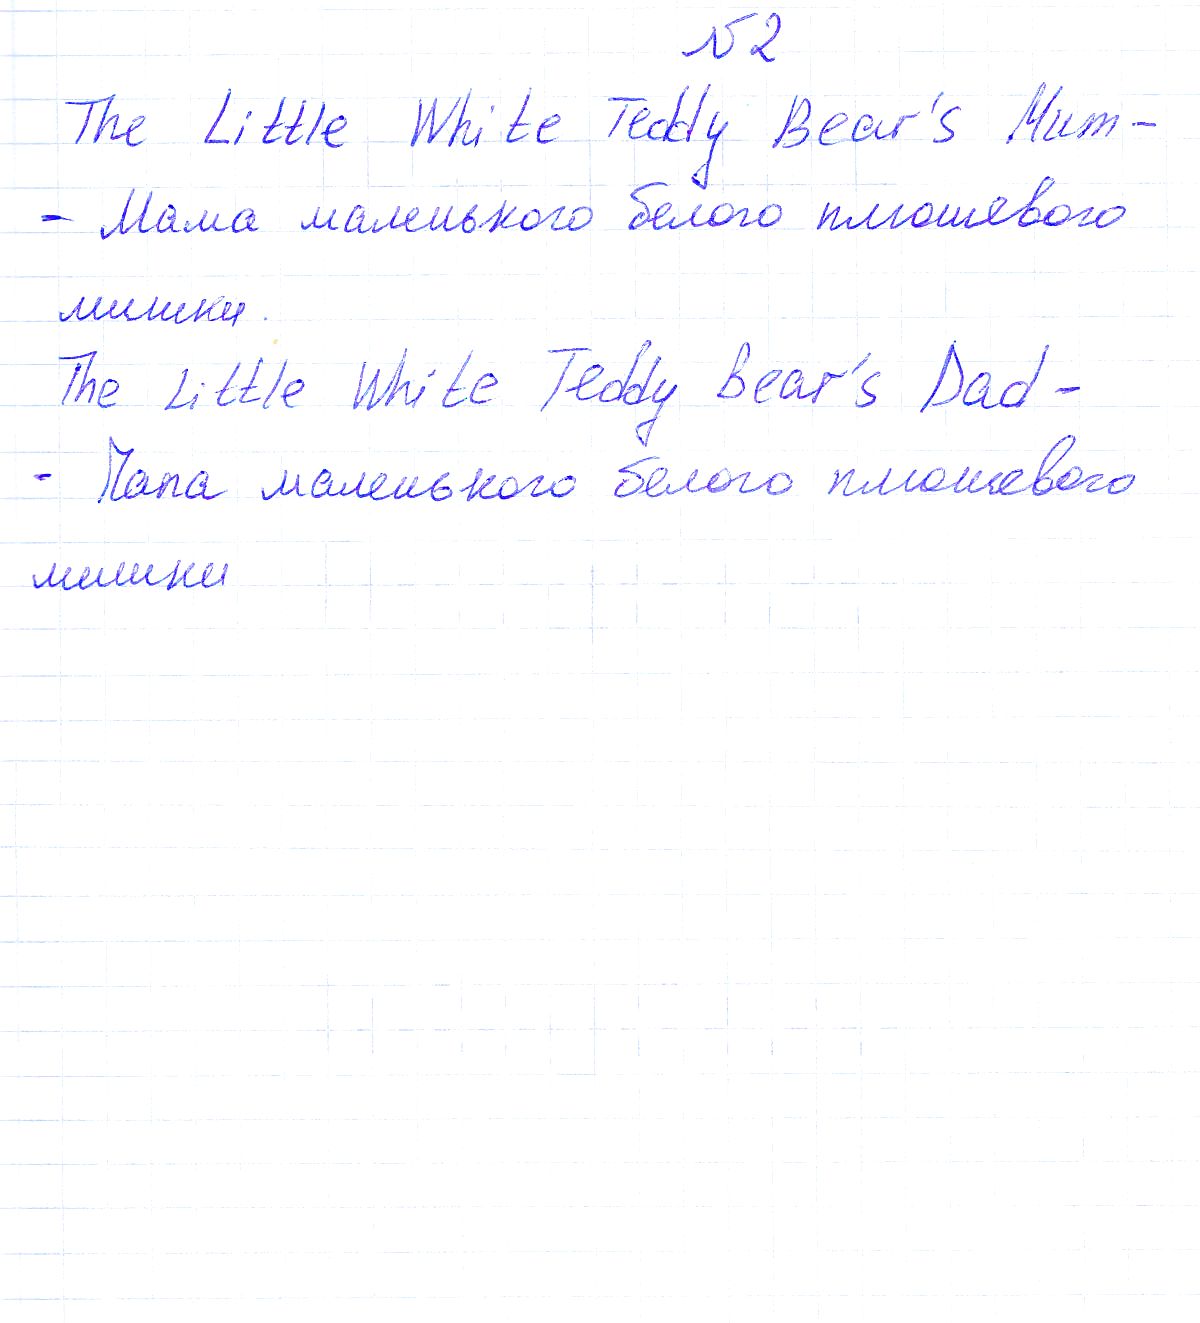 №2
The Little White Teddy Bear's Mum-
- Мама маленького белого плюшевого
мишки.
The Little White Teddy Bear's Dad-
- Папа маленького белого плюшевого
мишки